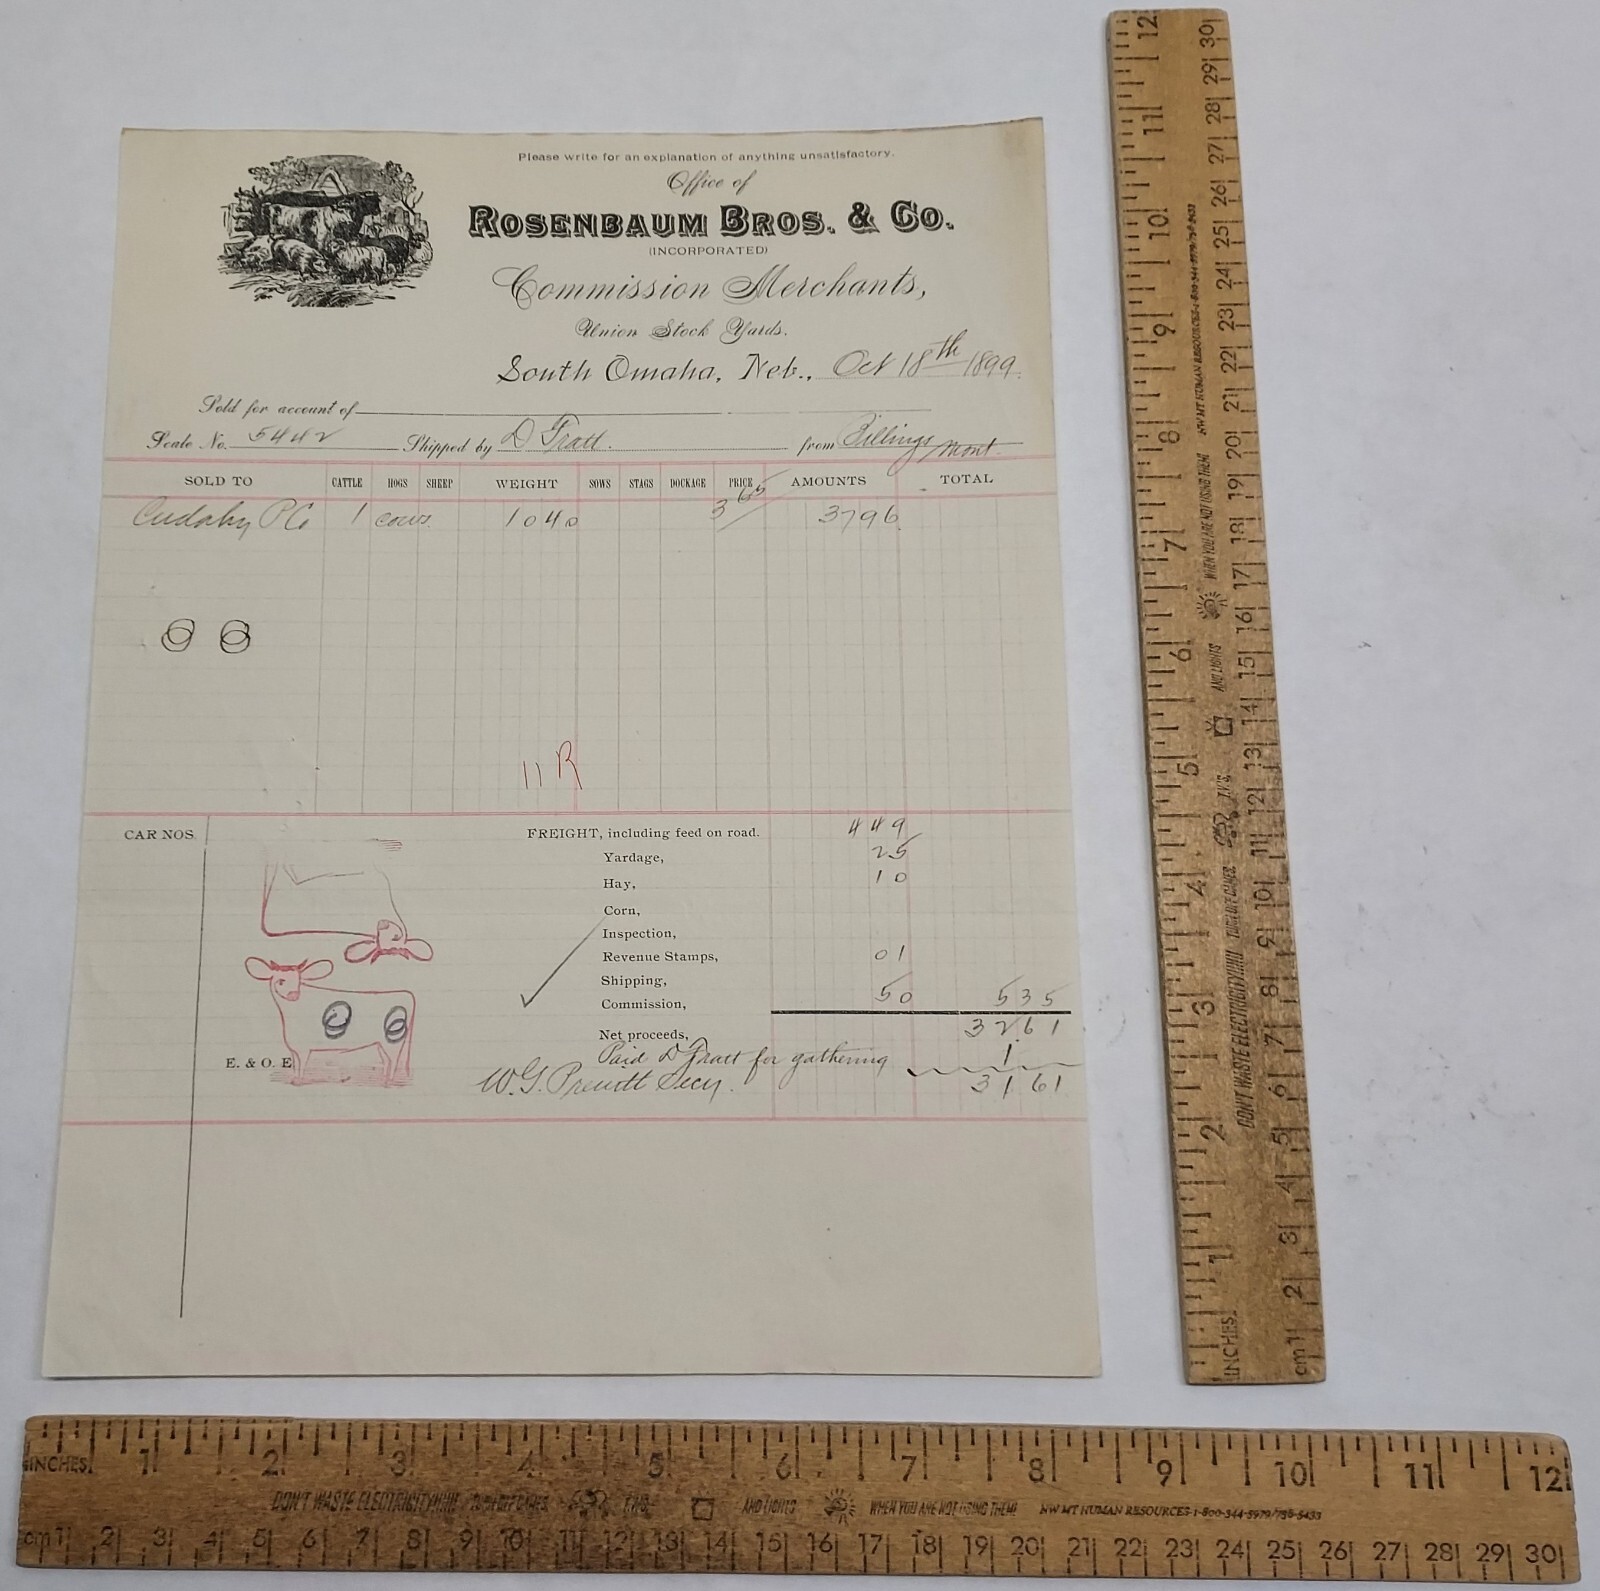 Please write for an explanation of anything unsatisfactory.
Office of
ROSENBAUM BROS. & CO.
(INCORPORATED)
Commission Merchants,
Union Stock Yards.
South Omaha, Neb., Oct 18th 1899.
Sold for account of
Scale No. 5442 Shipped by D Fratt. from Billings Mont.
SOLD TO CATTLE HOGS SHEEP WEIGHT SOWS STAGS DOCKAGE PRICE AMOUNTS TOTAL
Cudahy P Co 1 cows. 1040 3 65 3796
11 R
CAR NOS. FREIGHT, including feed on road. 449
Yardage, 25
Hay, 10
Corn,
Inspection,
Revenue Stamps, 01
Shipping,
Commission, 50 535
Net proceeds, 3261
E. & O. E. Paid D Fratt for gathering 1
W. G. Preuitt Secy. 3161
INCHES 1 2 3 4 5 6 7 8 9 10 11 12
DON'T WASTE ELECTRICITY!!!!! TURN OFF GAMES, T.V.'S, AND LIGHTS WHEN YOU ARE NOT USING THEM! NW MT HUMAN RESOURCES-1-800-344-5979/758-5433
cm 1 2 3 4 5 6 7 8 9 10 11 12 13 14 15 16 17 18 19 20 21 22 23 24 25 26 27 28 29 30
INCHES 1 2 3 4 5 6 7 8 9 10 11 12
DON'T WASTE ELECTRICITY!!!!! TURN OFF GAMES, T.V.'S, AND LIGHTS WHEN YOU ARE NOT USING THEM! NW MT HUMAN RESOURCES-1-800-344-5979/758-5433
cm 1 2 3 4 5 6 7 8 9 10 11 12 13 14 15 16 17 18 19 20 21 22 23 24 25 26 27 28 29 30